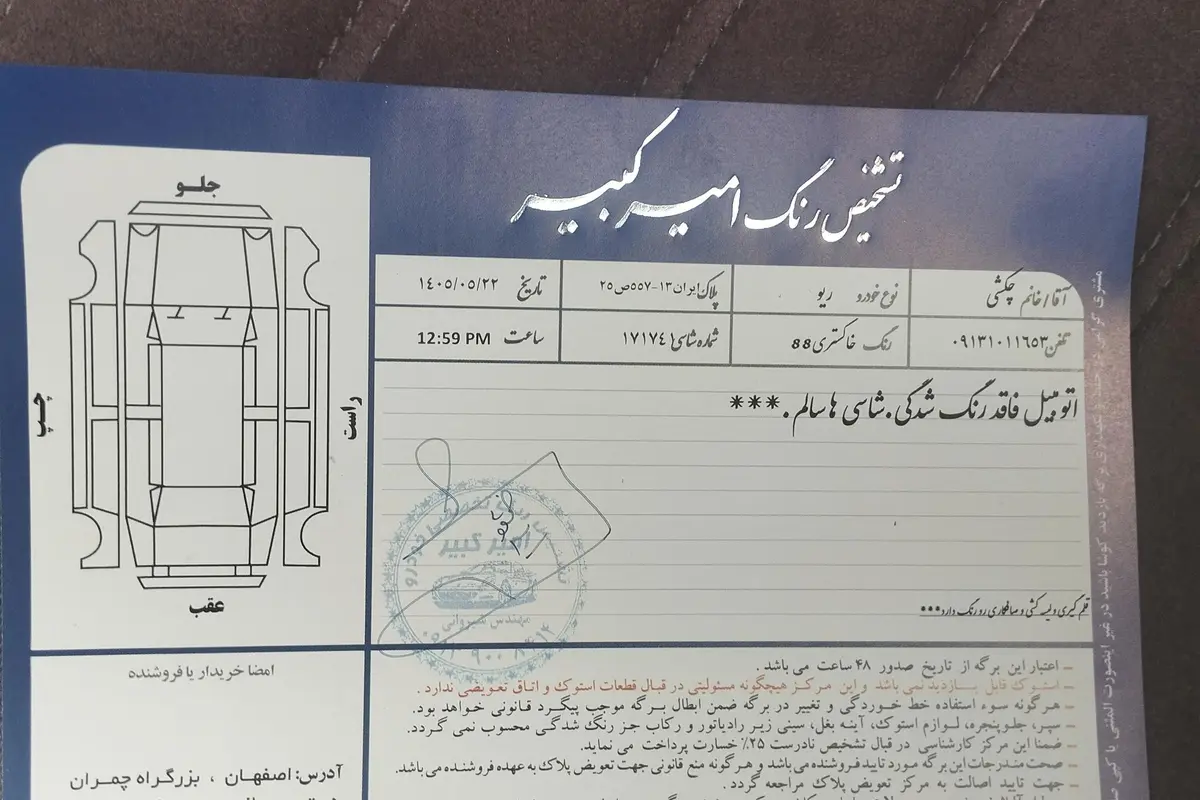 تشخیص رنگ امیر کبیر
آقا/خانم چکشی
نوع خودرو ریو
پلاک ایران ۱۳-۵۵۷ص۲۵
تاریخ ۱۴۰۵/۰۵/۲۲
تلفن ۰۹۱۳۱۰۱۱۶۵۳
رنگ خاکستری 88
شماره شاسی ۱۷۱۷۴۱
ساعت 12:59 PM
اتومبیل فاقد رنگ شدگی.شاسی ها سالم.***
قلم گیری و لیسه کشی و صافکاری رو رنگ دارد***
جلو
چپ
راست
عقب
امیر کبیر
مهندس شیروانی
– اعتبار این برگه از تاریخ صدور ۴۸ ساعت می باشد .
– استوک قابل بازدید نمی باشد و این مرکز هیچگونه مسئولیتی در قبال قطعات استوک و اتاق تعویضی ندارد .
– هرگونه سوء استفاده خط خوردگی و تغییر در برگه ضمن ابطال برگه موجب پیگرد قانونی خواهد بود.
– سپر، جلوپنجره، لوازم استوک، آینه بغل، سینی زیر رادیاتور و رکاب جز رنگ شدگی محسوب نمی گردد.
– ضمنا این مرکز کارشناسی در قبال تشخیص نادرست ۲۵٪ خسارت پرداخت می نماید.
– صحت مندرجات این برگه مورد تایید فروشنده می باشد و هرگونه منع قانونی جهت تعویض پلاک به عهده فروشنده می باشد.
– جهت تایید اصالت به مرکز تعویض پلاک مراجعه گردد .
امضا خریدار یا فروشنده
آدرس: اصفهان ، بزرگراه چمران